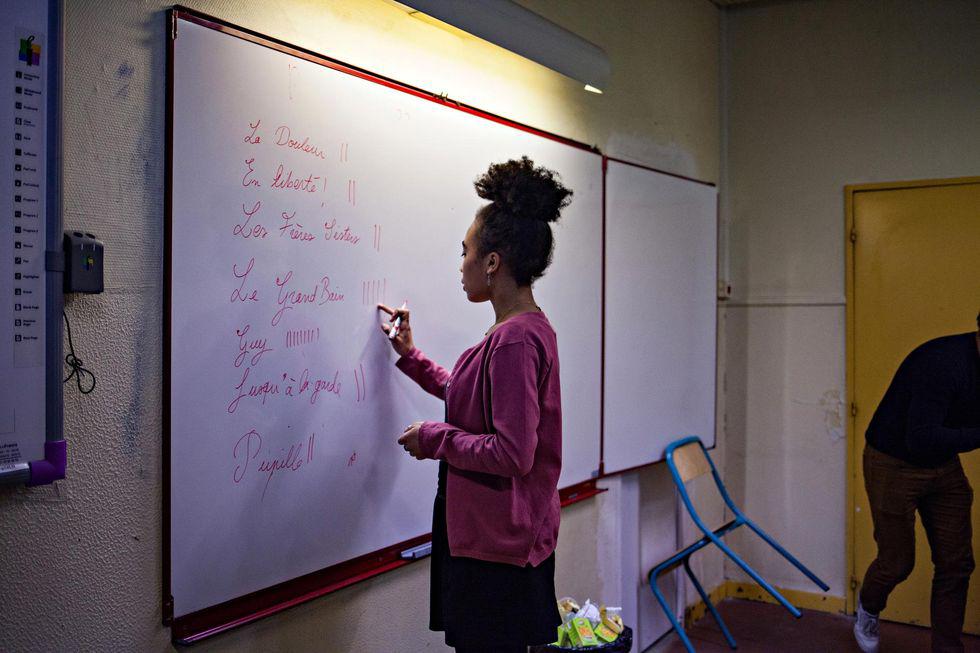 La Douleur ||
En liberté ! ||
Les Frères Sisters ||
Le Grand Bain |||||
Guy ||||||||
Jusqu'à la garde ||
Pupille ||